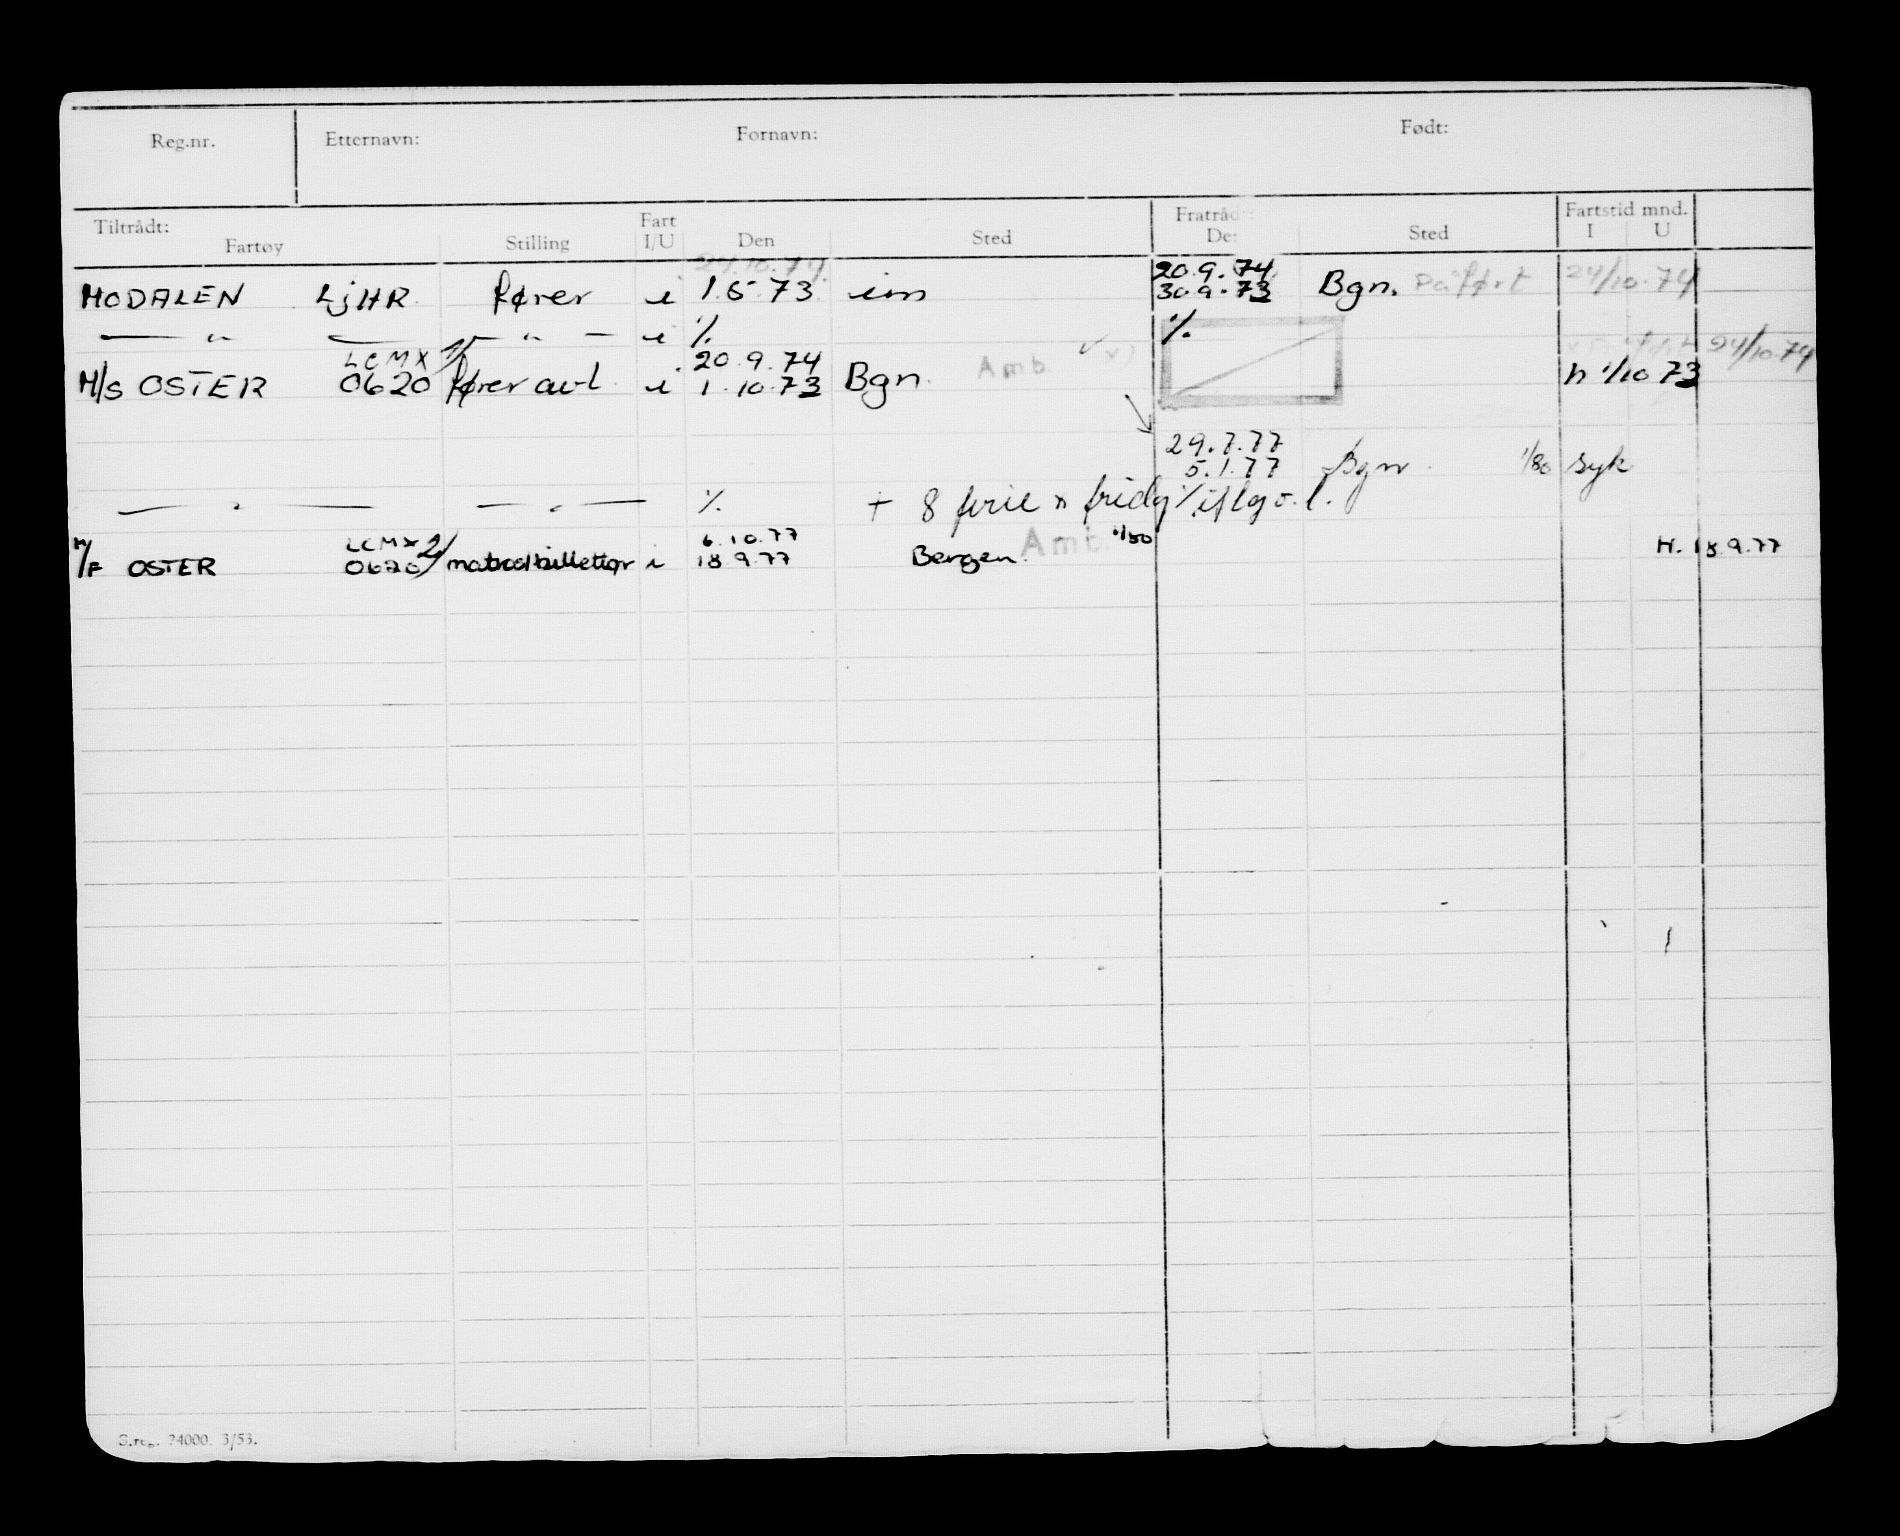 Reg.nr. Etternavn: Fornavn: Født:
Tiltrådt: Fartøy Stilling Fart I/U Den Sted Fratrådt: Den Sted Fartstid mnd. I U
24.10.74
20.9.74
MODALEN LJHR fører i 1.5.73 im 30.9.73 Bgn. Påført 24/10.74
— " — — " — i % %
LCMX 1/ 20.9.74 Amb. 24/10.74
M/S OSTER 0620 fører avl. i 1.10.73 Bgn. h 1/10 73
29.7.77
5.1.77 Bgn. 1/80 syk
— " — — " — % + 8 ferie
LCMX 2/ 6.10.77 Amb. 1/80
M/F OSTER 0620 i 18.9.77 Bergen. H. 18.9.77
24000. 3/53.